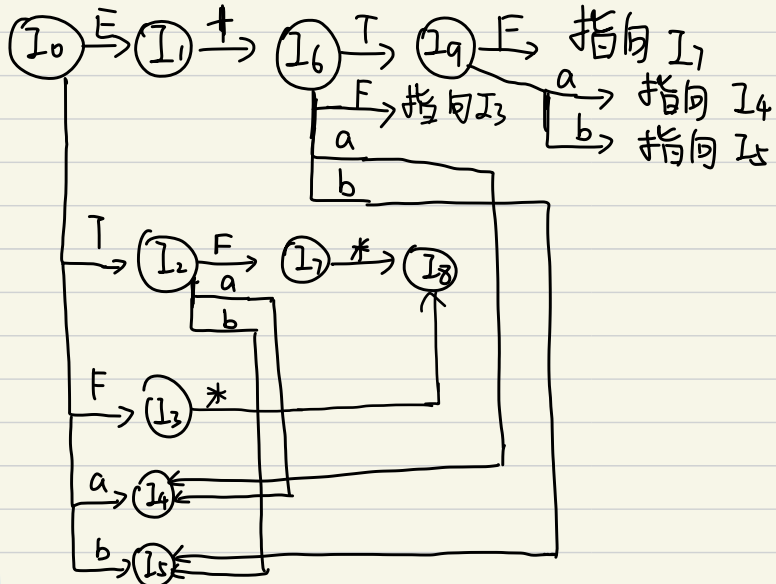 I0 E I1 + I6 T I9 F 指向 I7
F 指向 I3
a 指向 I4
a
b 指向 I5
b
T I2 F I7 * I8
a
b
F I3 *
a I4
b I5